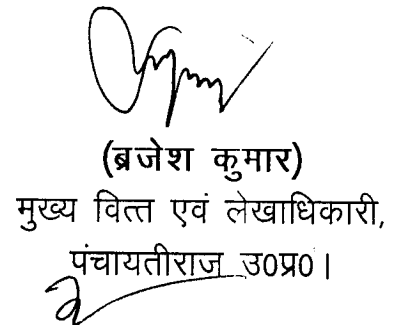 (ब्रजेश कुमार)
मुख्य वित्त एवं लेखाधिकारी,
पंचायतीराज उ0प्र0।